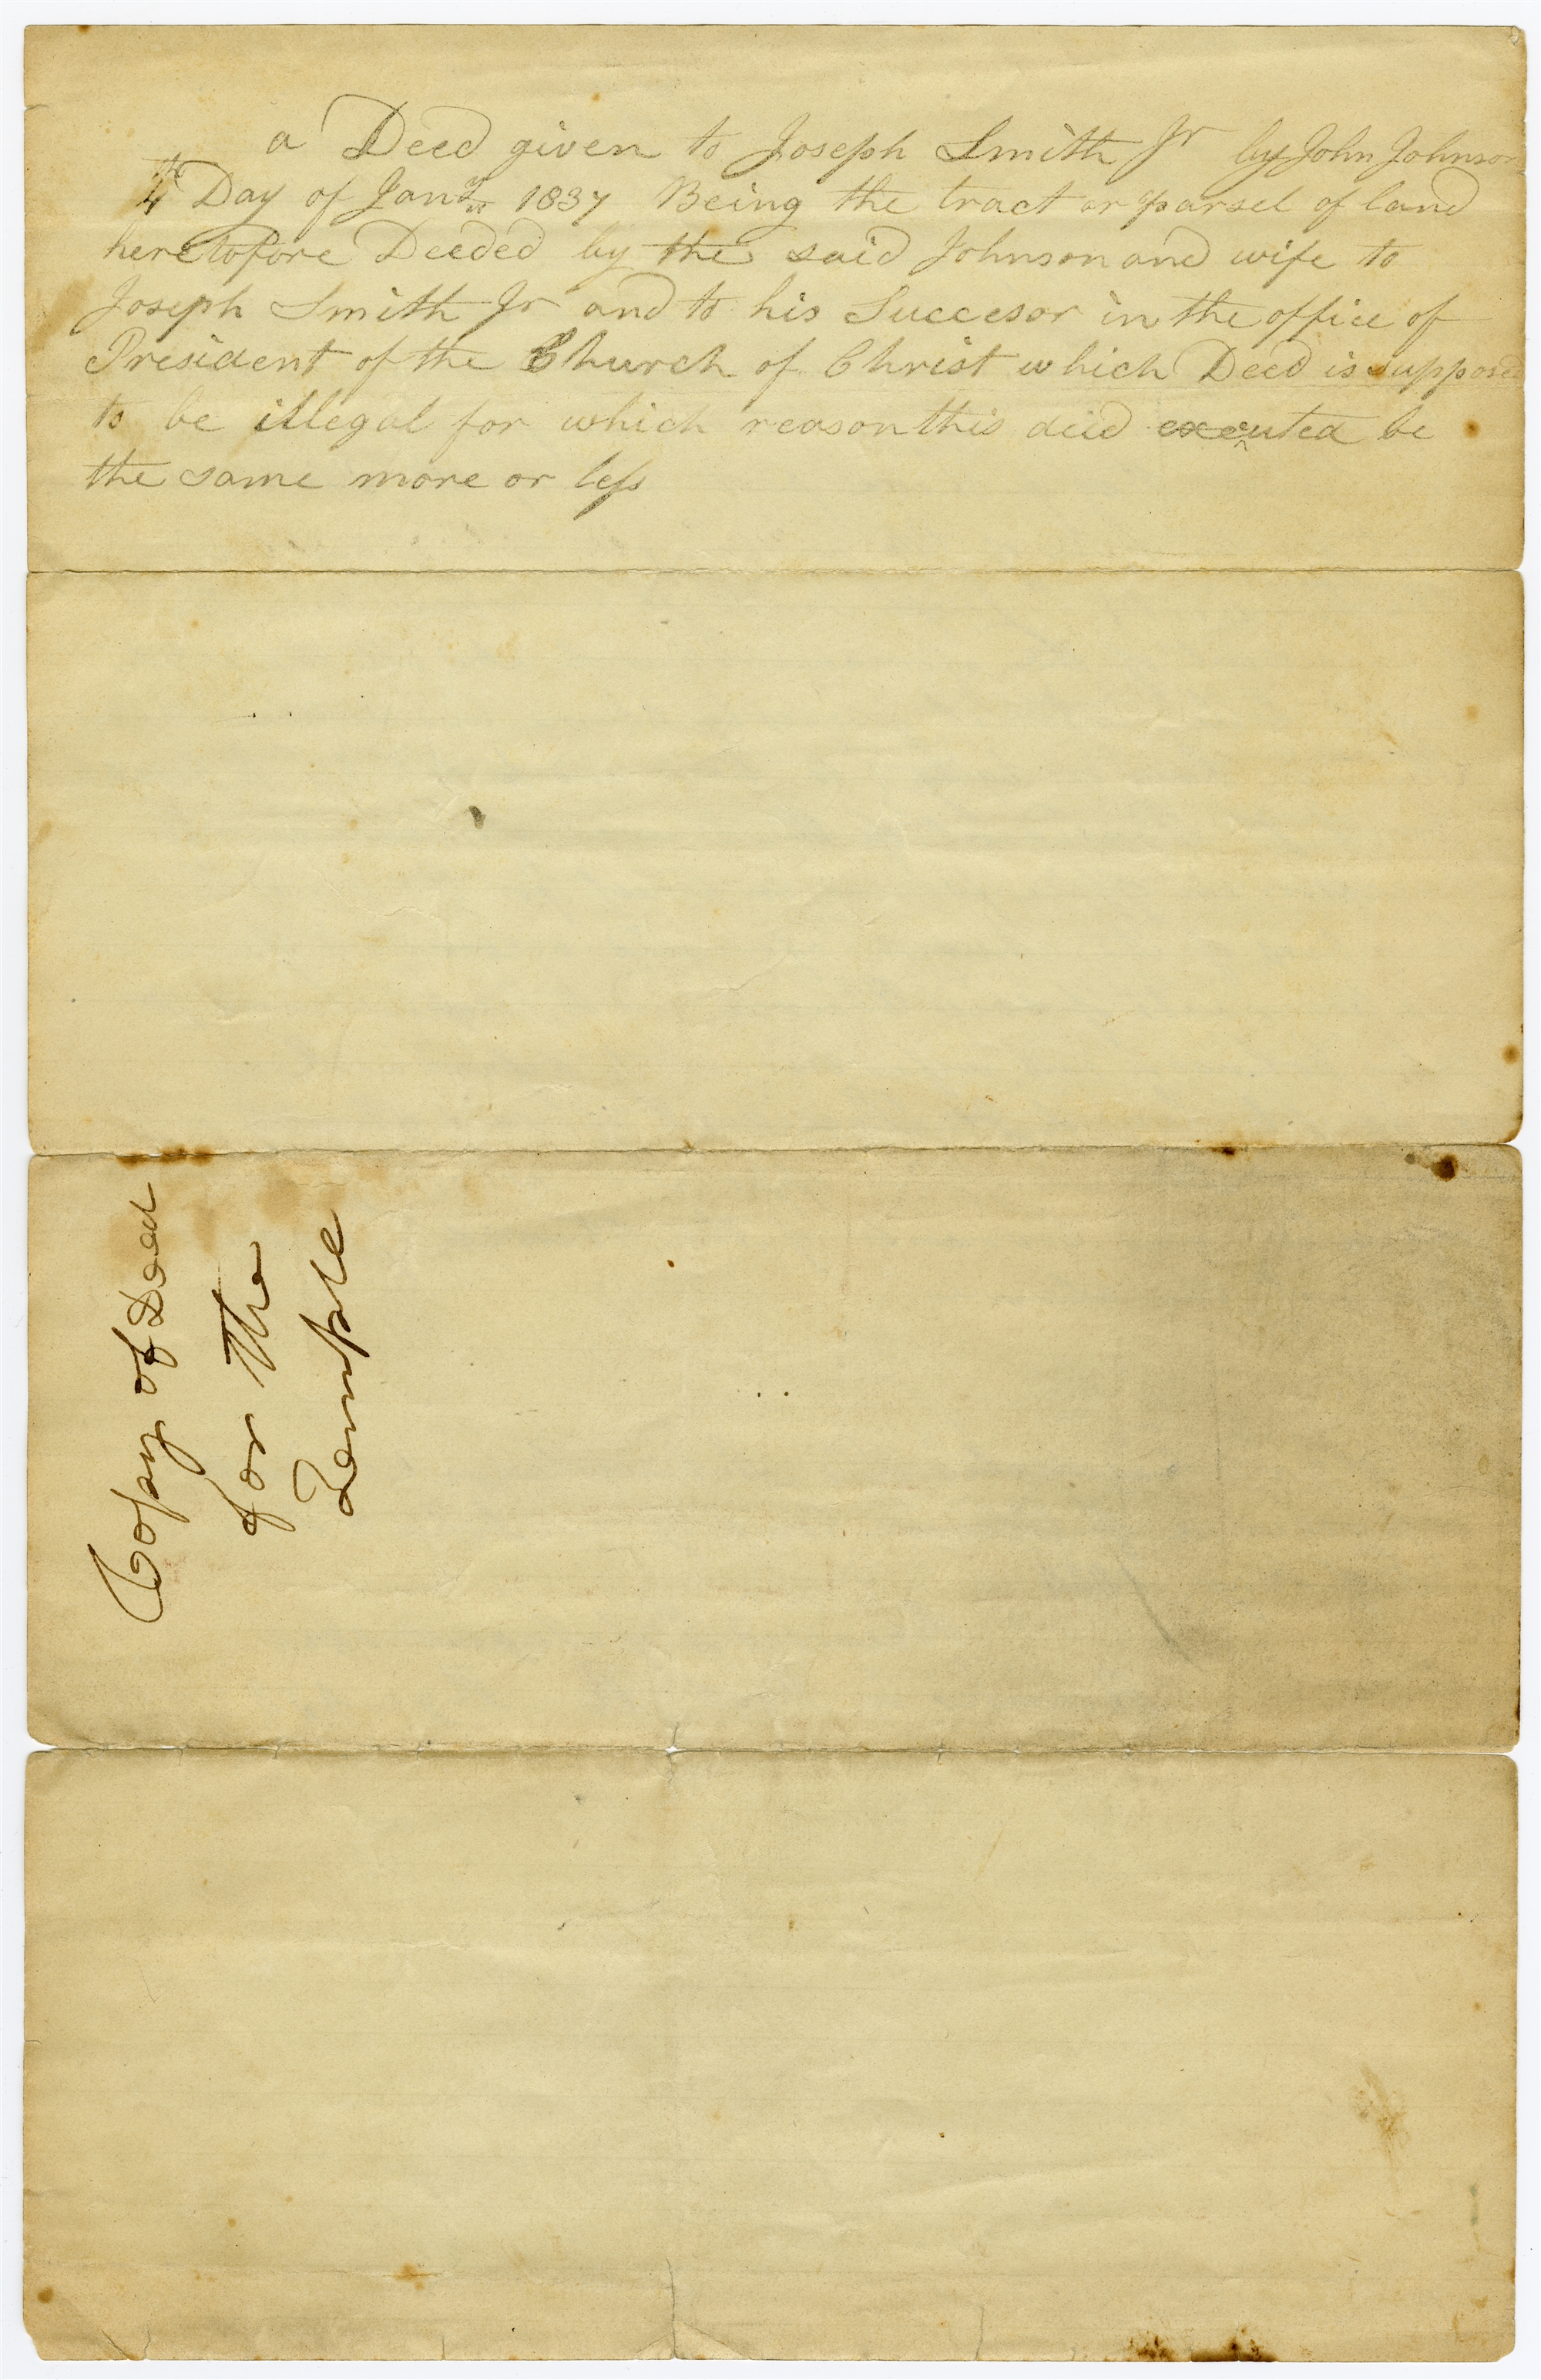 a Deed given to Joseph Smith Jr by John Johnson
4th Day of Jany 1837 Being the tract or parsel of land
heretofore Deeded by the said Johnson and wife to
Joseph Smith Jr and to his Succesor in the office of
President of the Church of Christ which Deed is supposed
to be illegal for which reason this deed executed be
the same more or less
Copy of Deed
for the
Temple